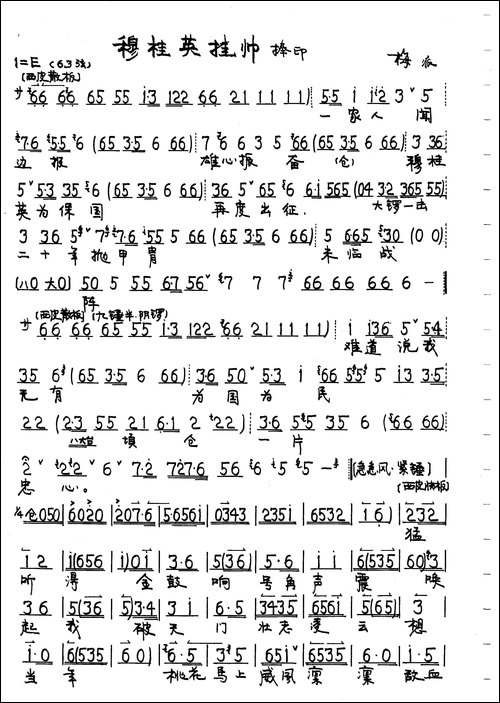 穆桂英挂帅 捧印
1=E (6.3弦) 梅派
[西皮散板]
サ 66 66 65 55 i·3 122 66 21 1 1 1 1) 5·5 i i2 3 5
一家人闻
7·6 5·5 6 (65 3·5 6 66) 7 6 6 3 5 66 (65 3·5 6 66) 3 36
边报 雄心振奋(仓) 穆桂
5 5·3 35 6 (65 3·5 6 66) 36 5 65 6 6·i 565 (04 32 365 55)
英为保国 再度出征. 大锣一击
3 36 5 7 7·6 i55 5 66 (65 3·5 6 66) 5 665 30 (0 0)
二十年抛甲胄 未临战
(八0 大0) 50 5 55 67 56 7 7 7 66 66 66 6 —
阵
[西皮散板] (九锤半.阴锣)
サ 66 66 66 65 55 i·3 122 66 21 1 1 1 1) i i36 5 54
难道说我
35 6 (65 3·5 6 66) 3·6 50 5·3 i 66 55 5 i3 3·5
无有 为国为民
22 (2·3 55 21 6·1 2 22) 3·6 55 35 6 (66 66)
八大台 填仓 一片
2 22 6 7·2 727·6 56 6 5 5 — (急急风·紧锤)
忠心。 [西皮快板]
¼ 仓050 | 6020 | 207·6 | 5·656i | 0343 | 235i | 6532 | 1 6) | 232
猛
i 2 | i(656 | i)0i | 3·6 | 5(36 | 5·6 | i i | 6(535 | 60)3
听得 金鼓响号角声震 唤
3 6 | 5(36 | 5)3·4 | 3 i | 6·5 | 3435 | 656i | 5(65) | 3
起我 破天门壮志凌云 想
i·0 | 6(535 | 6 0) | 6·5 | 3 5 | 65i | 6535 | 6·0 | i·5
当年 桃花马上威风凛凛 敌血